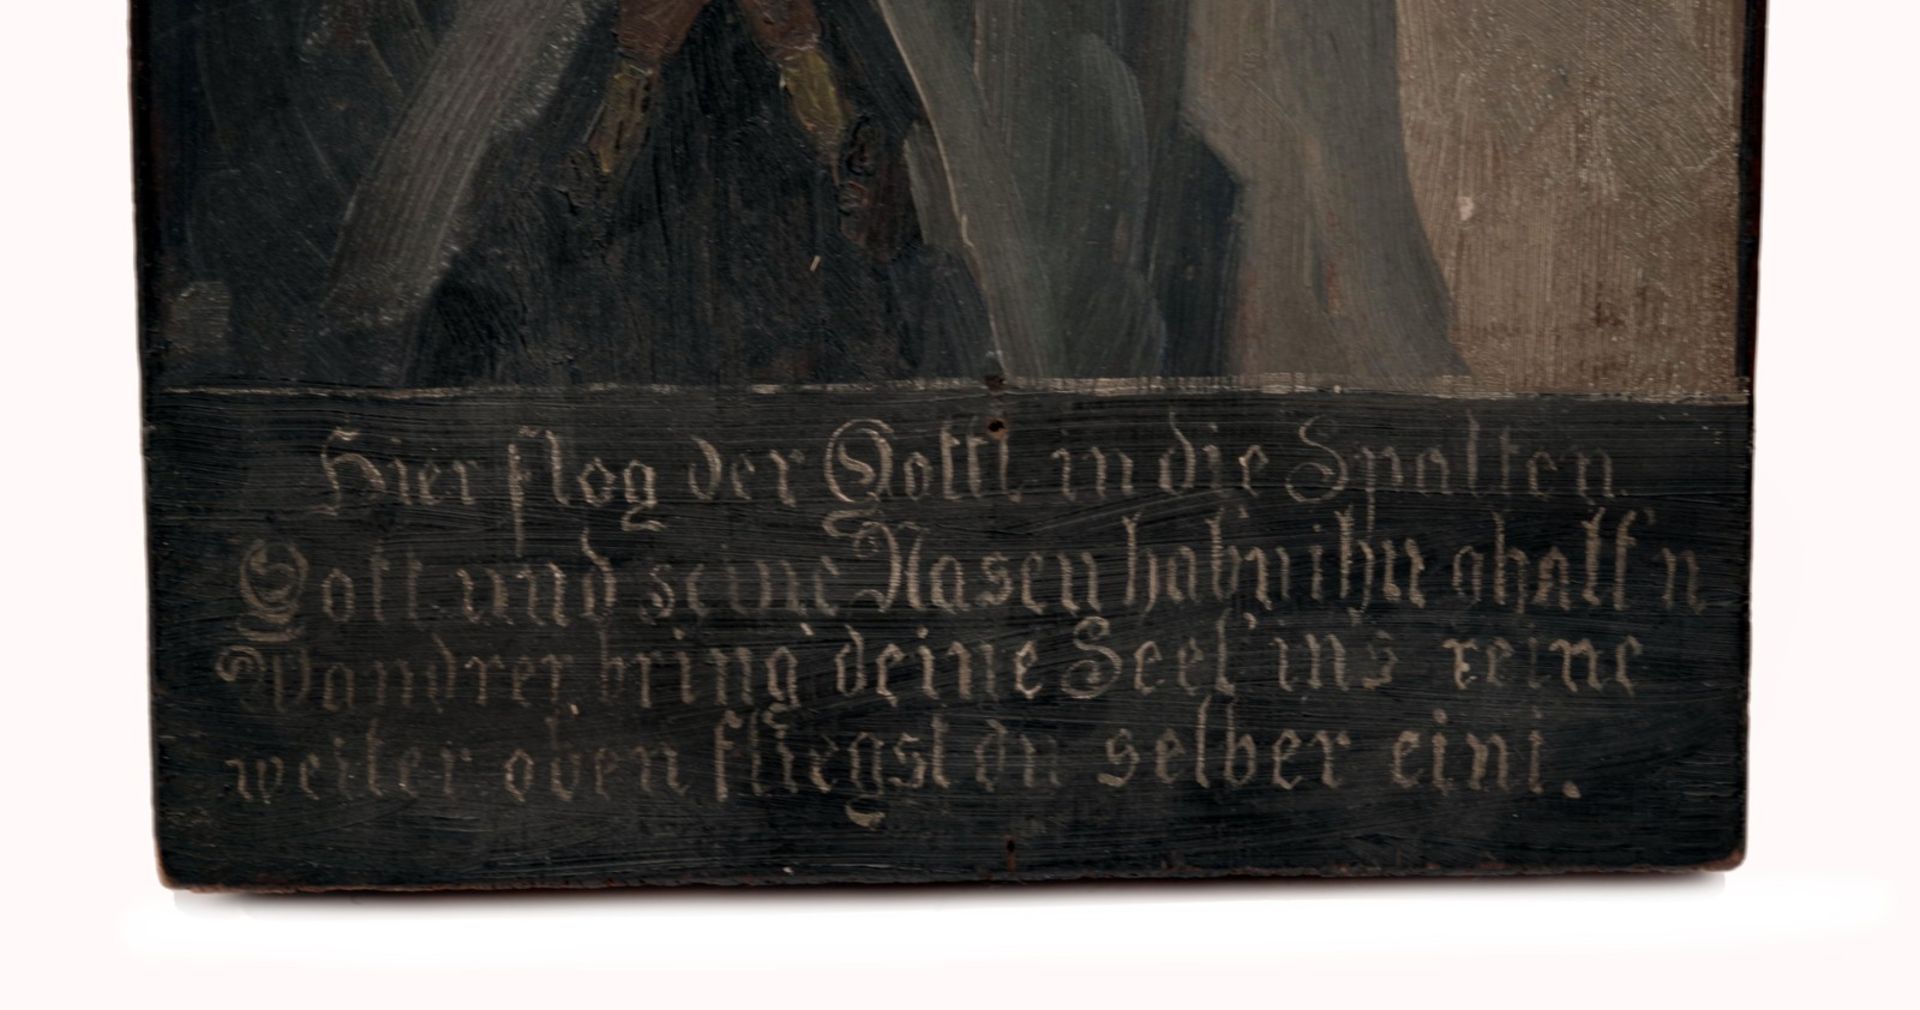 Hier flog der Gottl in die Spalten
Gott und seine Nasen hab'n ihn ghalt'n
Wandrer bring' deine Seel' in's reine
weiter oben fliegst du selber eini.